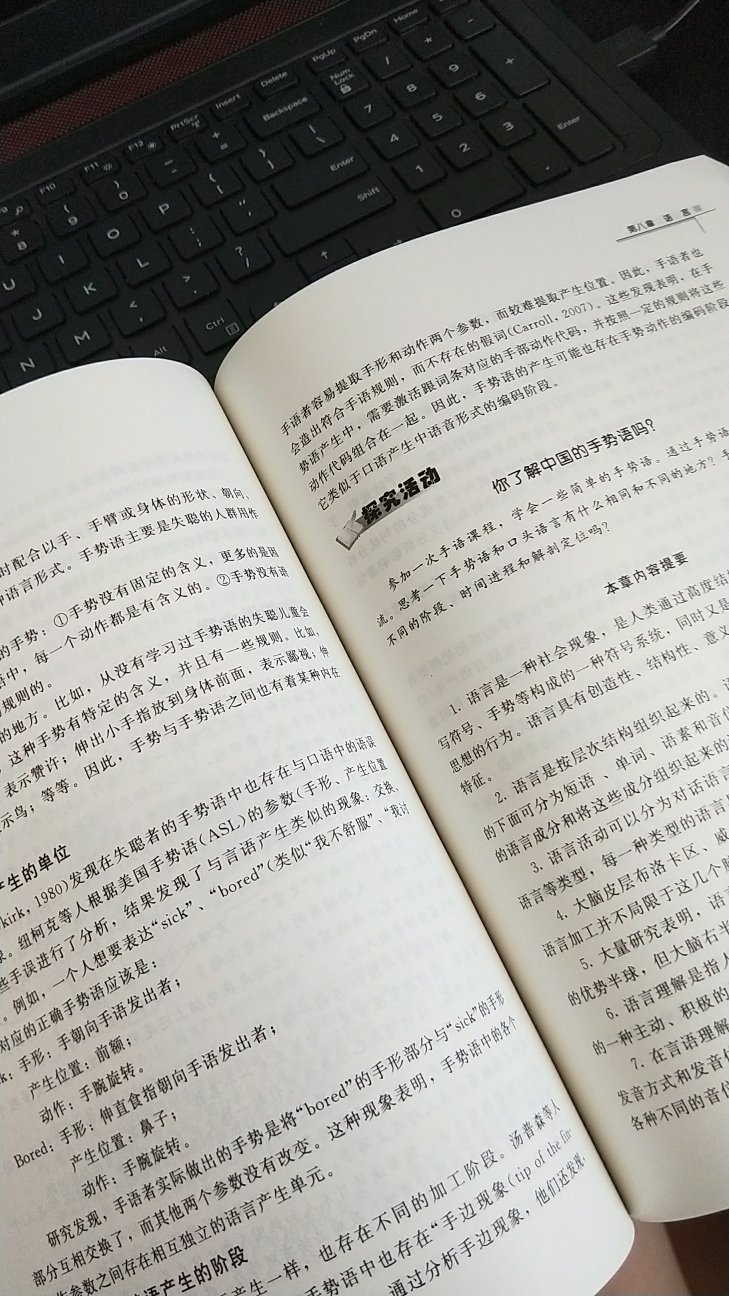 F10
F11
F12
PrtScr
Insert
Delete
PgUp
PgDn
Home
Backspace
Num
Lock
Enter
Shift
Ctrl
Alt
Enter
7
8
9
4
5
6
1
2
3
0
U
I
O
P
J
K
L
N
M
时配合以手、手臂或身体的形状、朝向、
语言形式。手势语主要是失聪的人群用作
的手势：①手势没有固定的含义，更多的是因
语中，每一个动作都是有含义的。②手势没有语
规则的。
的地方。比如，从没有学习过手势语的失聪儿童会
，这种手势有特定的含义，并且有一些规则。比如，
表示赞许；伸出小手指放到身体前面，表示鄙视；伸
示鸟；等等。因此，手势与手势语之间也有着某种内在
产生的单位
kirk, 1980)发现在失聪者的手势语中也存在与口语中的语误
纽柯克等人根据美国手势语(ASL)的参数(手形、产生位置
些手误进行了分析，结果发现了与言语产生类似的现象：交换、
。例如，一个人想要表达“sick”、“bored”(类似“我不舒服”、“我讨
对应的正确手势语应该是：
k：手形：手朝向手语发出者；
产生位置：前额；
动作：手腕旋转。
Bored：手形：伸直食指朝向手语发出者；
产生位置：鼻子；
动作：手腕旋转。
研究发现，手语者实际做出的手势是将“bored”的手形部分与“sick”的手形
部分互相交换了，而其他两个参数没有改变。这种现象表明，手势语中的各个
参数之间存在相互独立的语言产生单元。
语产生的阶段
产生一样，也存在不同的加工阶段。汤普森等人
手势语中也存在“手边现象(tip of the fin-
通过分析手边现象，他们还发现，
第八章 语言
手语者容易提取手形和动作两个参数，而较难提取产生位置。因此，手语者也
会造出符合手语规则，而不存在的假词(Carroll, 2007)。这些发现表明，在手
势语产生中，需要激活跟词条对应的手部动作代码，并按照一定的规则将这些
动作代码组合在一起。因此，手势语的产生可能也存在手势动作的编码阶段
它类似于口语产生中语音形式的编码阶段。
探究活动
你了解中国的手势语吗？
参加一次手语课程，学会一些简单的手势语。通过手势语
流。思考一下手势语和口头语言有什么相同和不同的地方？手
不同的阶段、时间进程和解剖定位吗？
本章内容提要
1. 语言是一种社会现象，是人类通过高度结
写符号、手势等构成的一种符号系统，同时又是
思想的行为。语言具有创造性、结构性、意义
特征。
2. 语言是按层次结构组织起来的。
的下面可分为短语、单词、语素和音位
的语言成分和将这些成分组织起来的
3. 语言活动可以分为对话语言
语言等类型，每一种类型的语言
4. 大脑皮层布洛卡区、威
语言加工并不局限于这几个脑
5. 大量研究表明，语言
的优势半球，但大脑右半
6. 语言理解是指人
的一种主动、积极的
7. 在言语理解
发音方式和发音位
各种不同的音位